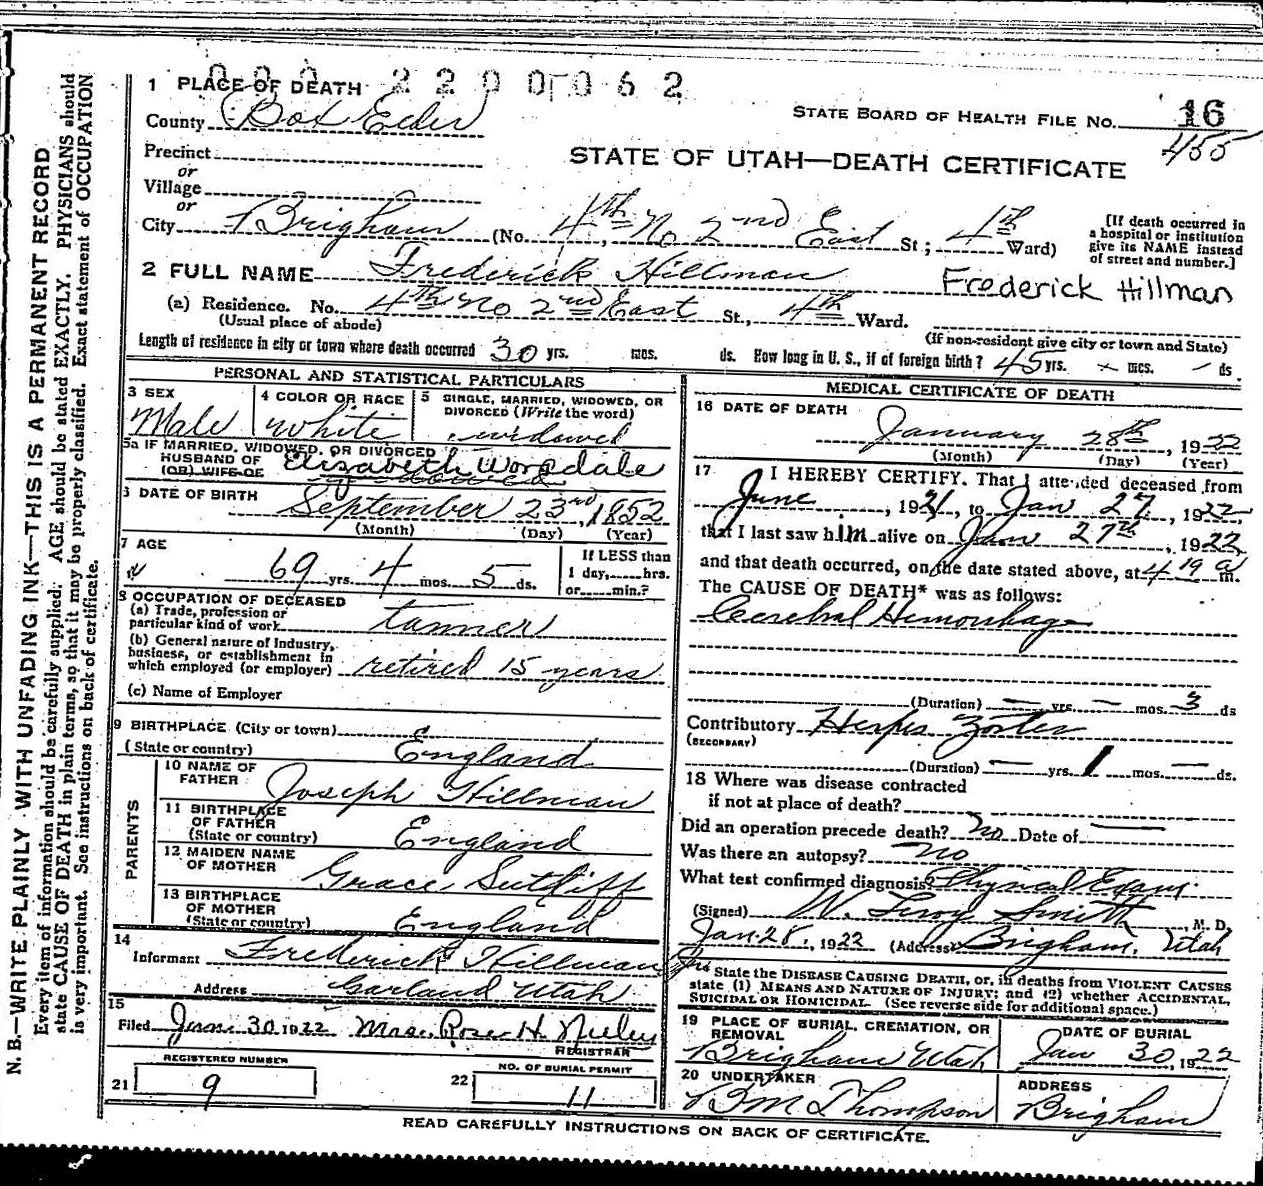 000 2200062
1 PLACE OF DEATH
County Box Elder
STATE BOARD OF HEALTH FILE No. 16
455
Precinct
or
Village
or
STATE OF UTAH—DEATH CERTIFICATE
City Brigham (No. 4th No 2nd East St; 4th Ward)
[If death occurred in a hospital or institution give its NAME instead of street and number.]
2 FULL NAME Frederick Hillman
Frederick Hillman
(a) Residence. No. 4th No 2nd East St., 4th Ward.
(Usual place of abode) (If non-resident give city or town and State)
Length of residence in city or town where death occurred 30 yrs. mos. ds. How long in U. S., if of foreign birth? 45 yrs. — mos. — ds.
PERSONAL AND STATISTICAL PARTICULARS
3 SEX Male
4 COLOR OR RACE white
5 SINGLE, MARRIED, WIDOWED, OR DIVORCED (Write the word) widowed
5a IF MARRIED, WIDOWED, OR DIVORCED
HUSBAND OF Elizabeth Worsdale
(OR) WIFE OF
6 DATE OF BIRTH September 23rd, 1852
(Month) (Day) (Year)
7 AGE 69 yrs. 4 mos. 5 ds.
If LESS than 1 day, hrs. or min.?
8 OCCUPATION OF DECEASED
(a) Trade, profession or particular kind of work tanner
(b) General nature of industry, business, or establishment in which employed (or employer) retired 15 years
(c) Name of Employer
9 BIRTHPLACE (City or town)
(State or country) England
PARENTS
10 NAME OF FATHER Joseph Hillman
11 BIRTHPLACE OF FATHER (State or country) England
12 MAIDEN NAME OF MOTHER Grace Sutcliff
13 BIRTHPLACE OF MOTHER (State or country) England
14
Informant Frederick Hillman
Address Garland Utah
15
Filed Jan. 30 1922 Mrs. Rose H.
REGISTRAR
REGISTERED NUMBER
21 9
NO. OF BURIAL PERMIT
22 11
MEDICAL CERTIFICATE OF DEATH
16 DATE OF DEATH
January 28th, 1922
(Month) (Day) (Year)
17 I HEREBY CERTIFY, That I attended deceased from
June, 1921, to Jan 27, 1922
that I last saw him alive on Jan 27th, 1922
and that death occurred, on the date stated above, at 4 19 a m.
The CAUSE OF DEATH* was as follows:
Cerebral Hemorrhage
(Duration) — yrs. — mos. 3 ds
Contributory Herpes Zoster
(SECONDARY)
(Duration) — yrs. 1 mos. — ds.
18 Where was disease contracted
if not at place of death?
Did an operation precede death? No Date of —
Was there an autopsy? No
What test confirmed diagnosis? Physical Exam.
(Signed) W. Leroy Smith, M. D.
Jan. 28, 1922 (Address) Brigham, Utah
* State the DISEASE CAUSING DEATH, or, in deaths from VIOLENT CAUSES
state (1) MEANS AND NATURE OF INJURY; and (2) whether ACCIDENTAL,
SUICIDAL OR HOMICIDAL. (See reverse side for additional space.)
19 PLACE OF BURIAL, CREMATION, OR REMOVAL Brigham Utah
DATE OF BURIAL Jan 30, 1922
20 UNDERTAKER B M Thompson
ADDRESS Brigham
READ CAREFULLY INSTRUCTIONS ON BACK OF CERTIFICATE.
N. B.—WRITE PLAINLY WITH UNFADING INK—THIS IS A PERMANENT RECORD
Every item of information should be carefully supplied. AGE should be stated EXACTLY. PHYSICIANS should
state CAUSE OF DEATH in plain terms, so that it may be properly classified. Exact statement of OCCUPATION
is very important. See instructions on back of certificate.